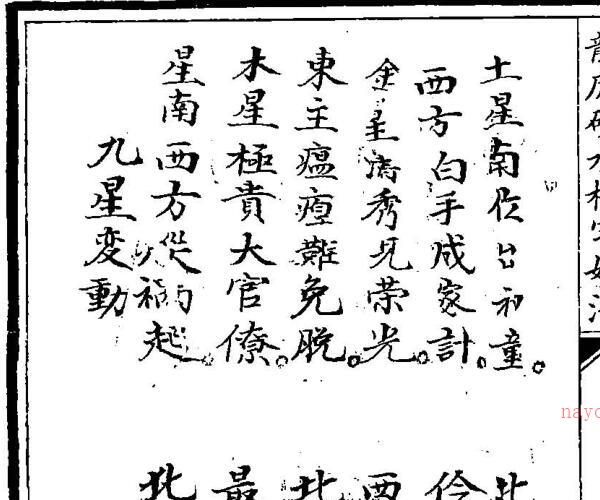 水相生
土星南童。
北
西方白手成家計。
金星清秀見荣光。
西
東主瘟難免脫。
北
木星極貴大官僚。
最
星南西方禍起。
北
九星変動
nayo